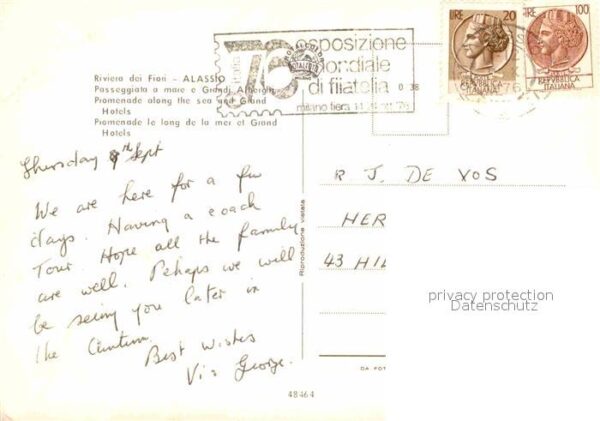 Riviera dei Fiori - ALASSIO
Passeggiata a mare e Grandi Alberghi
Promenade along the sea and Grand
Hotels
Promenade le long de la mer et Grand
Hotels
Italia 76
esposizione
mondiale
di filatelia
milano fiera 14 24 ott '76
TOTALCOLOR
D 38
LIRE 20
REPUBBLICA
ITALIANA
76
LIRE 100
REPUBBLICA
ITALIANA
Thursday 9th Sept
We are here for a few
days. Having a coach
Tour. Hope all the family
are well. Pehaps we will
be seeing you later in
the Auntum.
Best wishes
Vi & George.
R J. DE VOS
HER
43 HIL
Riproduzione vietata
privacy protection
Datenschutz
DA FOT
48464